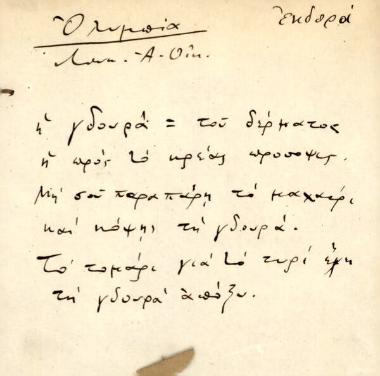 Ὀλυμπία
ἐκδορά
Λακ. Ἀ. Οἰκ.
ἡ γδουρά = τοῦ δέρματος
ἡ πρὸς τὸ κρέας προσοψις.
Μή σου παραπάρῃ τὸ μαχαίρι
καὶ κόψῃς τὴ γδουρά.
Τὸ τομάρι γιὰ τὸ τυρὶ ἔχει
τὴ γδουρὰ ἀπόξω.